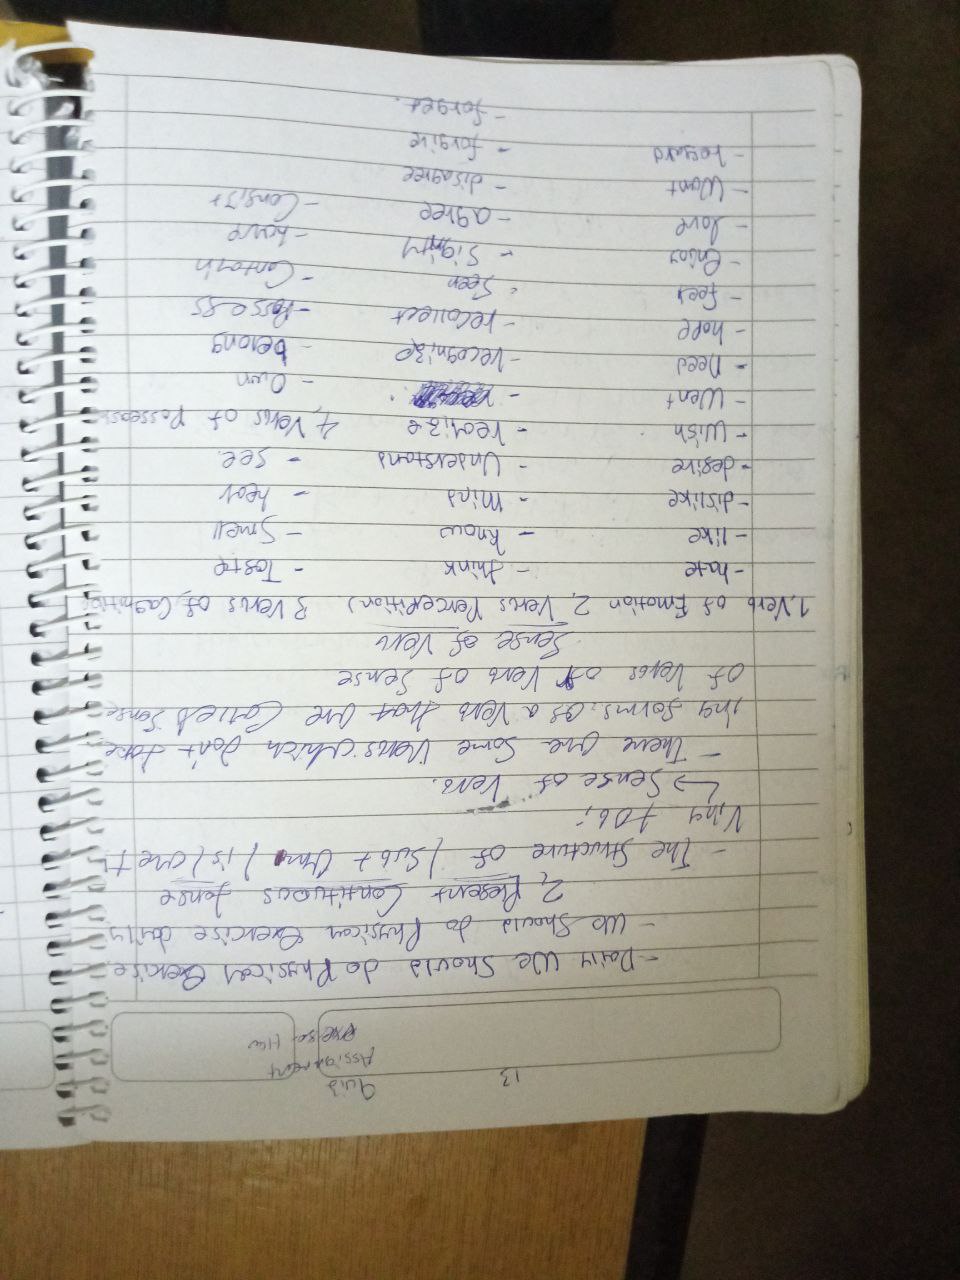 13
Quiz
Assignment
Hw
- Daily We Should do Physical Exercise.
- We Should do Physical Exercise daily
2, Present Continuous tense
- The Structure of (Sub + (am) is/are +
Ving + Ob;
→ Sense of Verb.
- There are Some Verbs which don't take
ing forms. as a Verb that are Called Sense
of Verbs or Verb of Sense
Sense of Verb
1. Verb of Emotion 2, Verbs Perception) 3 Verbs of
- hate - think - Taste
- like - know - Smell
- dislike - Mind - hear
- desire - Understand - See
- Wish - realize 4, Verbs of
- Want - Own
- Need - recognize - belong
- hope - recollect - Possess
- feel - Seen - Contain
- Enjoy - Signify - have
- love - agree - Consist
- Want - disagree
- regard - forgive
- forget.